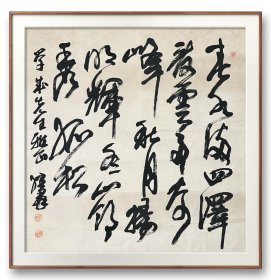 春水满四泽
夏云多奇
峰秋月扬
明辉冬岭
秀孤松
先生雅正